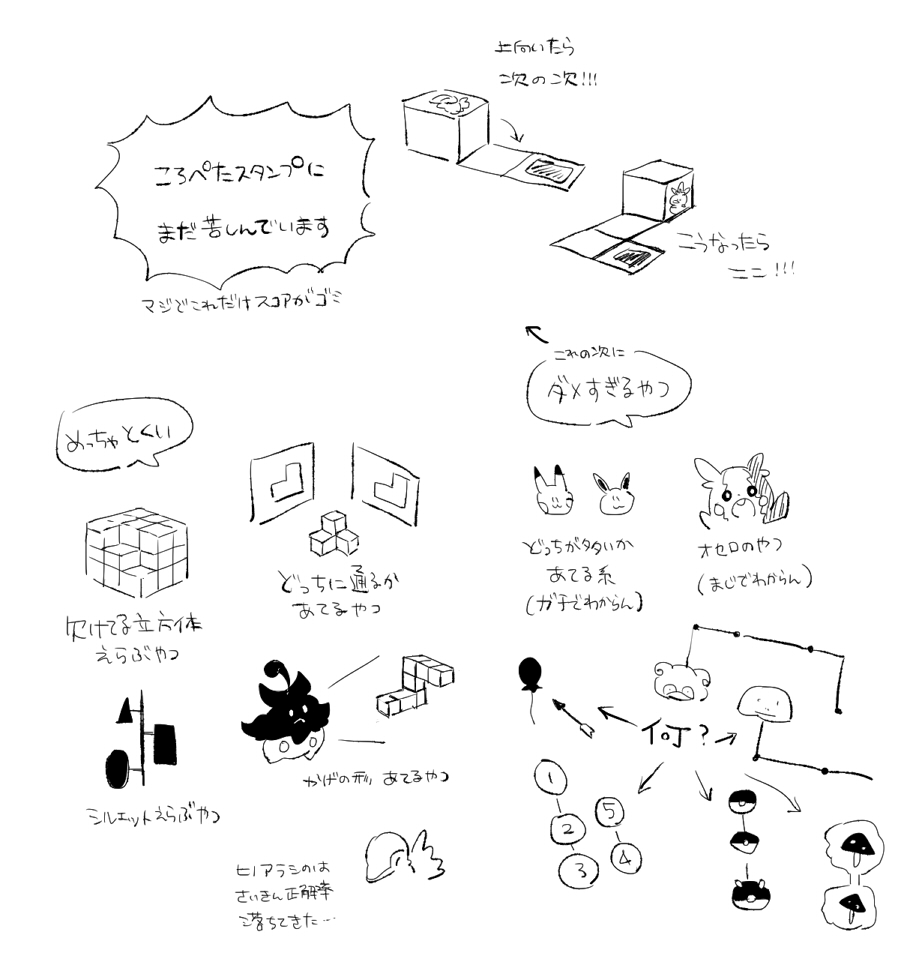 上向いたら
次の次!!!
ころぺたスタンプに
まだ苦しんでいます
マジでこれだけスコアがゴミ
こうなったら
ココ!!!
これの次に
ダメすぎるやつ
めっちゃとくい
欠けてる立方体
えらぶやつ
どっちに通るか
あてるやつ
どっちがタタいか
あてる系
(ガチでわからん)
オセロのやつ
(まじでわからん)
シルエットえらぶやつ
かげの形 あてるやつ
何?
1
2
3
5
4
ヒノアラシのは
さいきん正解率
落ちてきた…